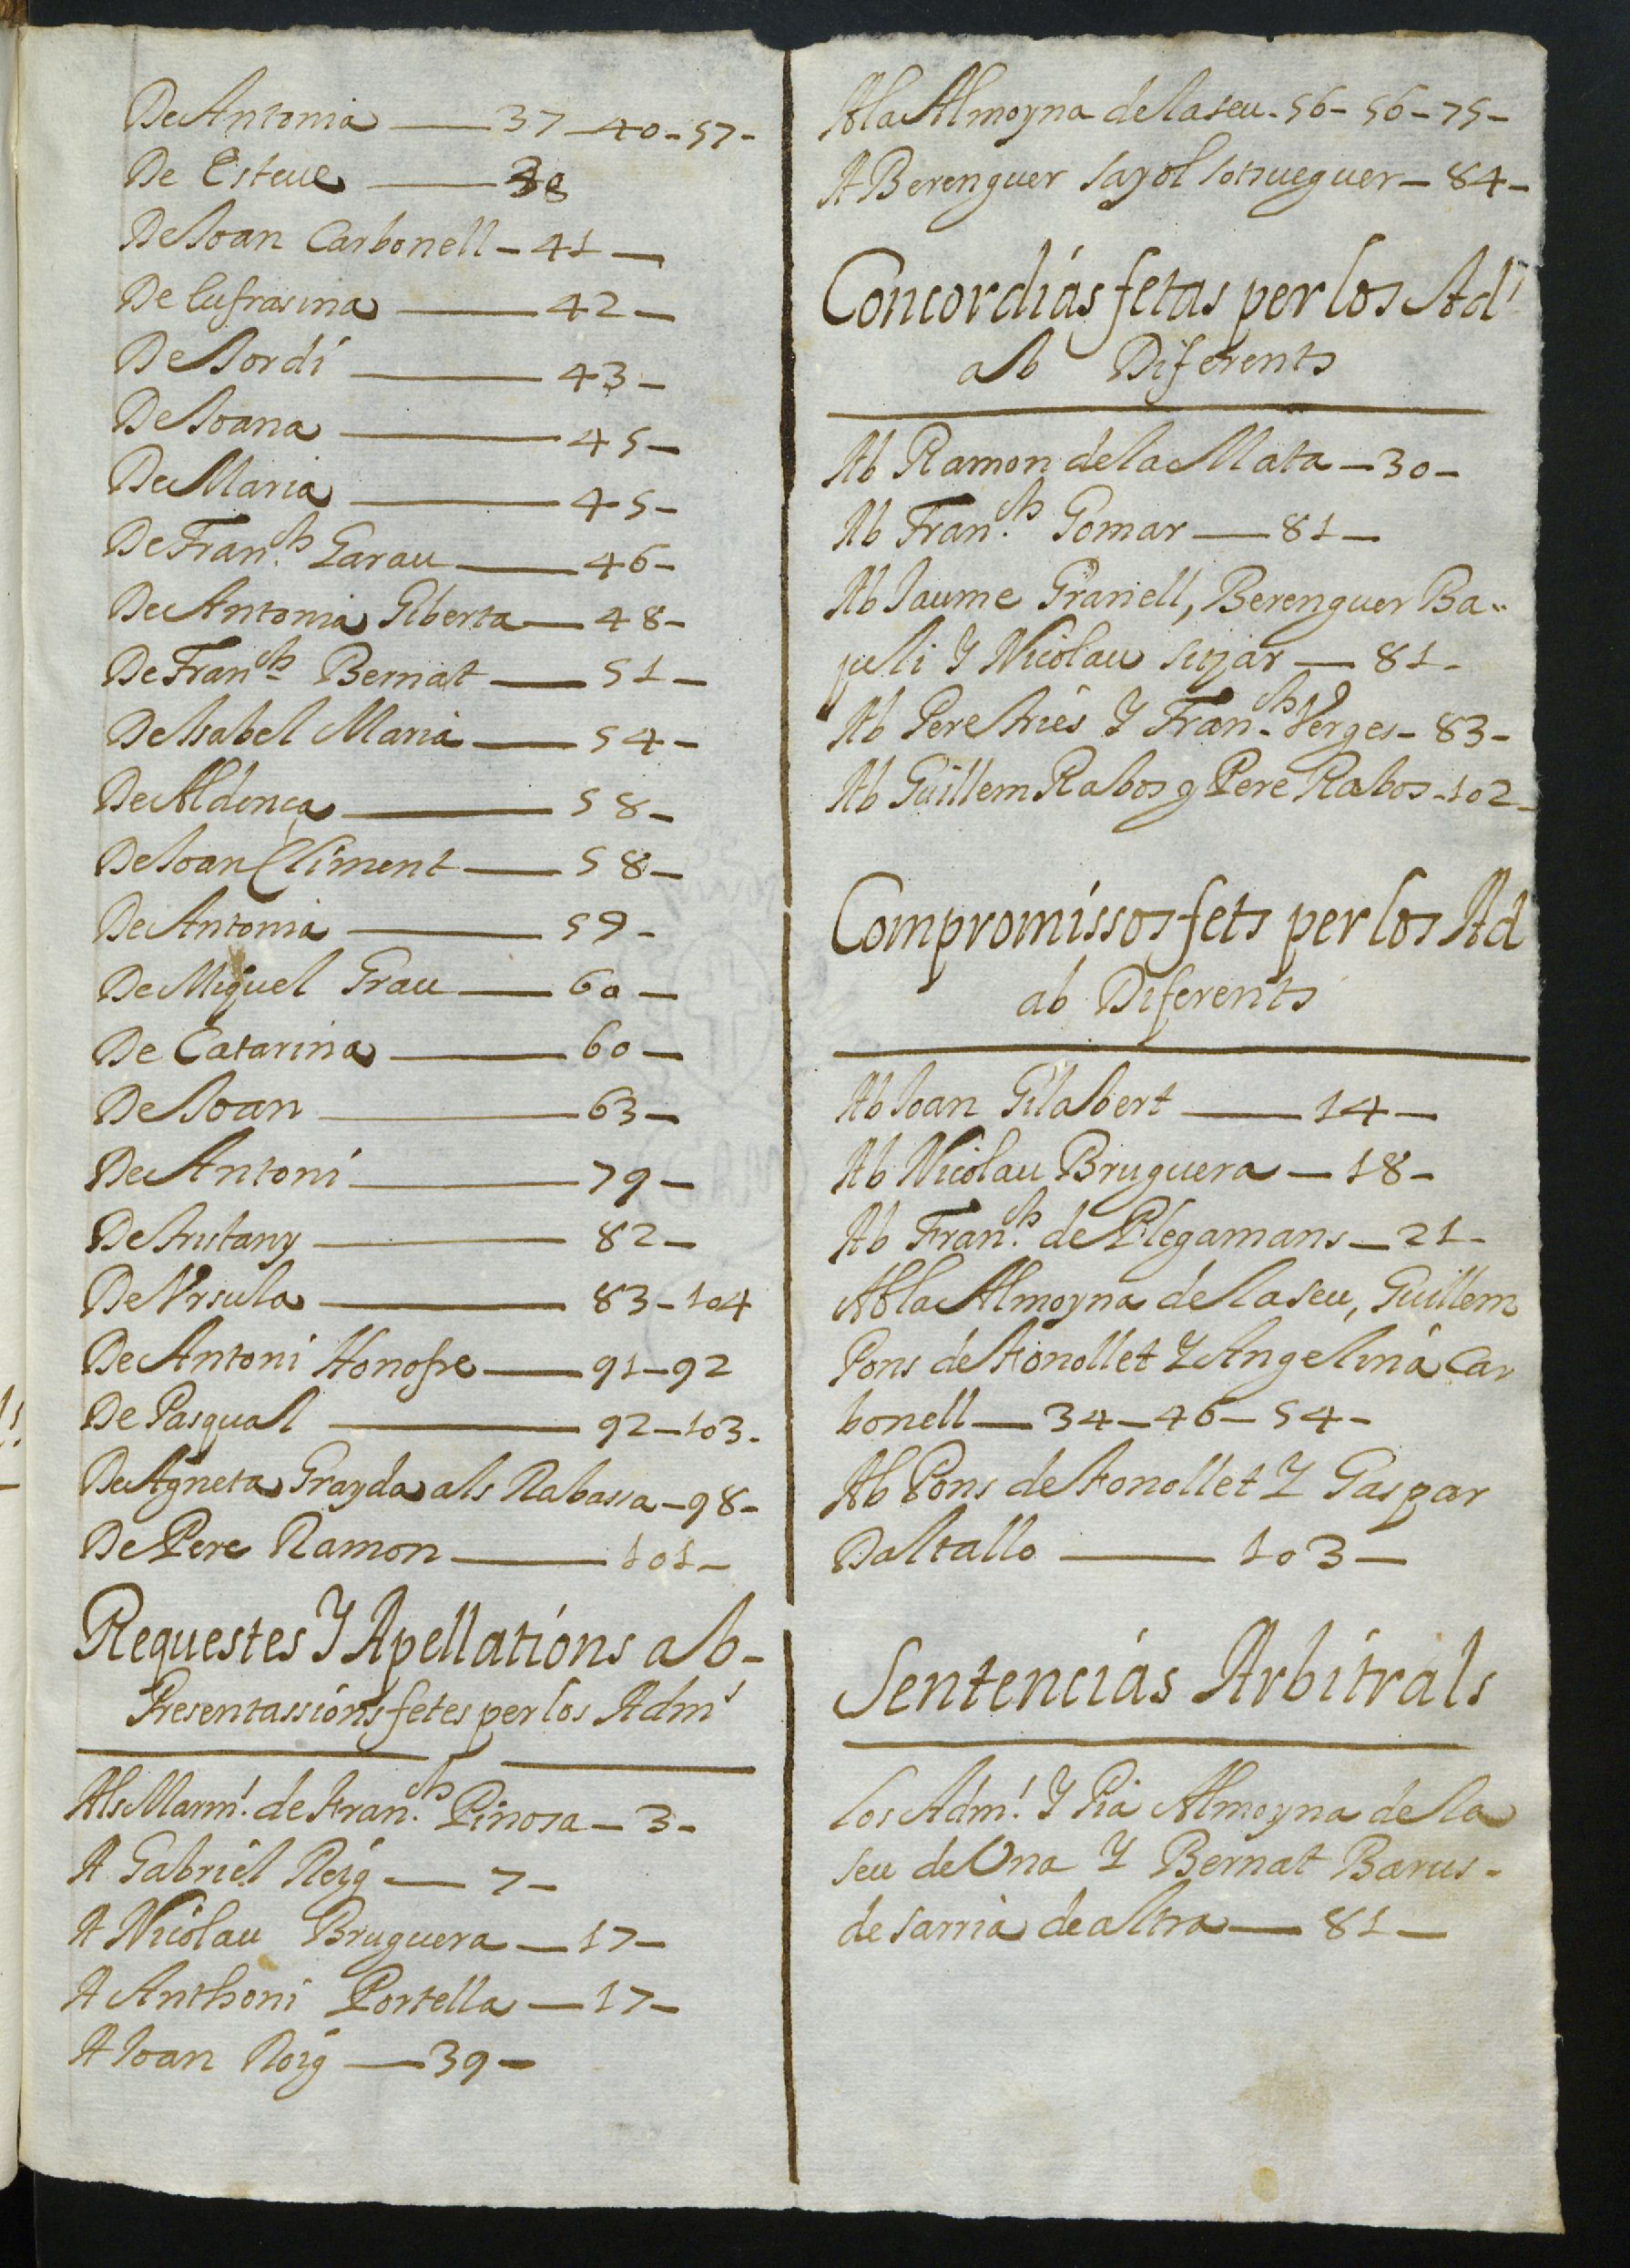 De Antonia — 37 — 40 - 57 -
De Esteue — 38
De Joan Carbonell - 41 —
De Eufrasina — 42 —
De Jordi — 43 -
De Joana — 45 -
De Maria — 45 -
De Fran.ch Garau — 46 -
De Antonia Giberta — 48 -
De Fran.ch Bernat — 51 -
De Isabel Maria — 54 -
De Aldonça — 58 -
De Joan Climent — 58 -
De Antonia — 59 -
De Miquel Grau — 60 -
De Catarina — 60 -
De Joan — 63 -
De Antoni — 79 -
De — 82 -
De Vrsula — 83 - 104
De Antoni Honofre — 91 - 92
De Pasqual — 92 - 103 -
De Agneta Grayda als Rabassa - 98 -
De Pere Ramon — 101 -
Requestes Y Apellations ab -
Presentassions fetes per los Adm.s
Als Marm.s de Fran.ch Pinosa - 3 -
A Gabriel Reig — 7 -
A Nicolau Bruguera — 17 -
A Anthoni Portella — 17 -
A Joan Roig — 39 -
A la Almoyna de la seu - 56 - 56 - 75 -
A Berenguer sayol sotsueguer - 84 -
Concordias fetas per los Ad.s
ab Diferents
Ab Ramon de la Mata - 30 -
Ab Fran.ch Gomar — 81 -
Ab Jaume Granell, Berenguer Ba-
juli Y Nicolau sitjar — 81 -
Ab Pere Aries Y Fran.ch Verges - 83 -
Ab Guillem Rabos y Pere Rabos - 102 -
Compromissos fets per los Ad
ab Diferents
Ab Joan Gilabert — 14 -
Ab Nicolau Bruguera — 18 -
Ab Fran.ch de Plegamans — 21 -
Ab la Almoyna de la seu, Guillem
Pons de Fonollet Y Angelina Car
bonell — 34 - 46 - 54 -
Ab Pons de Fonollet Y Gaspar
Daltallo — 103 -
Sentencias Arbitrals
los Adm.s Y Pia Almoyna de la
seu de Una Y Bernat Barus -
de sarria de altra — 81 -